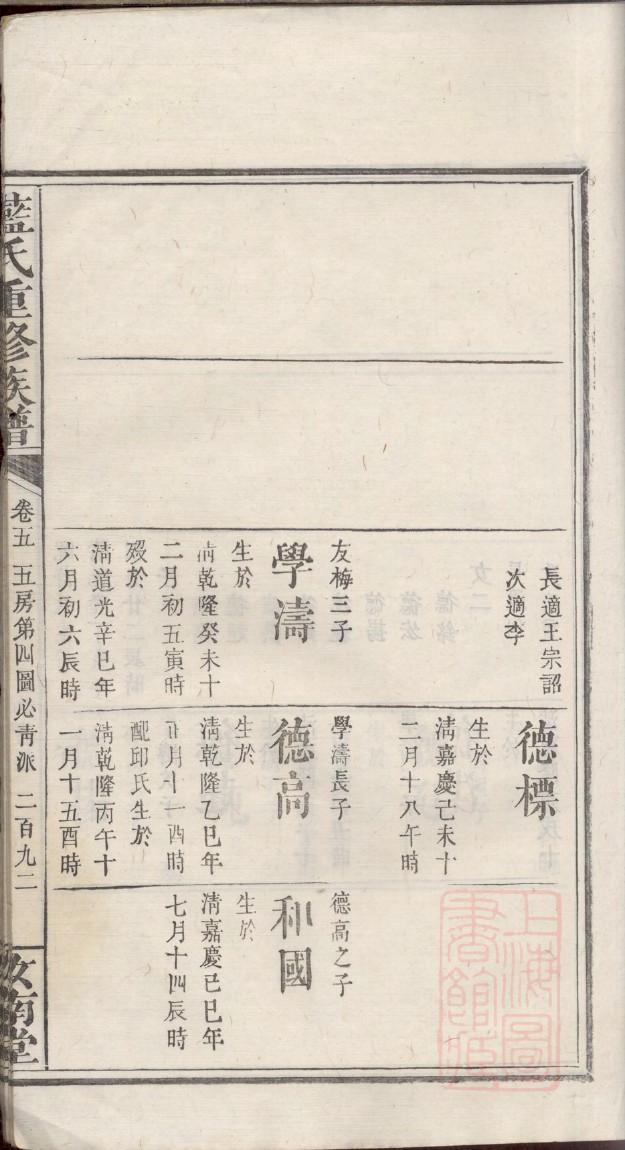 長適王宗詔
次適李
友梅三子
學濤
生於
清乾隆癸未十
二月初五寅時
歿於
清道光辛巳年
六月初六辰時
德標
生於
清嘉慶己未十
二月十八午時
學濤長子
德高
生於
清乾隆乙巳年
正月十一酉時
配邱氏生於
清乾隆丙午十
一月十五酉時
德高之子
和國
生於
清嘉慶己巳年
七月十四辰時
藍氏重修族譜
卷五 五房第四圖必青派 二百九二
汝南堂
上海圖
書館藏